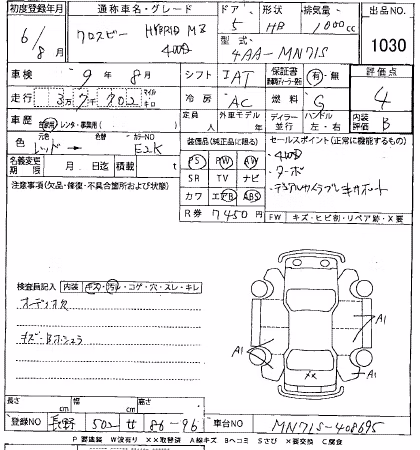 初度登録年月 通称車名・グレード ドア 形状 排気量 出品NO
6/8月 クロスビー HYBRID MZ 4WD 5 HB 1000cc 1030
型式 4AA-MN71S
車検 9年 8月 シフト IAT 保証書 有・無 評価点 4
走行 3万7千702 マイル キロ 冷房 AC 燃料 G
車歴 自家用 レンタ・事業用( ) 定員 人 外里モデル 年 ディーラー 並行 ハンドル 左・右 内装評価 B
色 元色 レッド → 色替 カラーNO E2K 装備品(純正品に限る) セールスポイント(正常に機能するもの)
名義変更期限 月 日迄 積載 t PS PW AW ・4WD
注意事項(欠品・修復・不具合箇所および状態) SR TV ナビ ・ターボ
カワ エアB ABS ・デュアルカメラブレーキサポート
R券 7450円 FW キズ・ヒビ割・リペア跡・X要
検査員記入 内装 キズ・汚れ・コゲ・穴・スレ・キレ
オーディオ欠
A1
A1
A1
長さ cm 幅 cm 高さ cm
登録NO 長野 502 せ 86-96 車台NO MN71S-408695
P要塗装 W波有り XX取替済 A線キズ Bヘコミ Sさび X要交換 C腐食